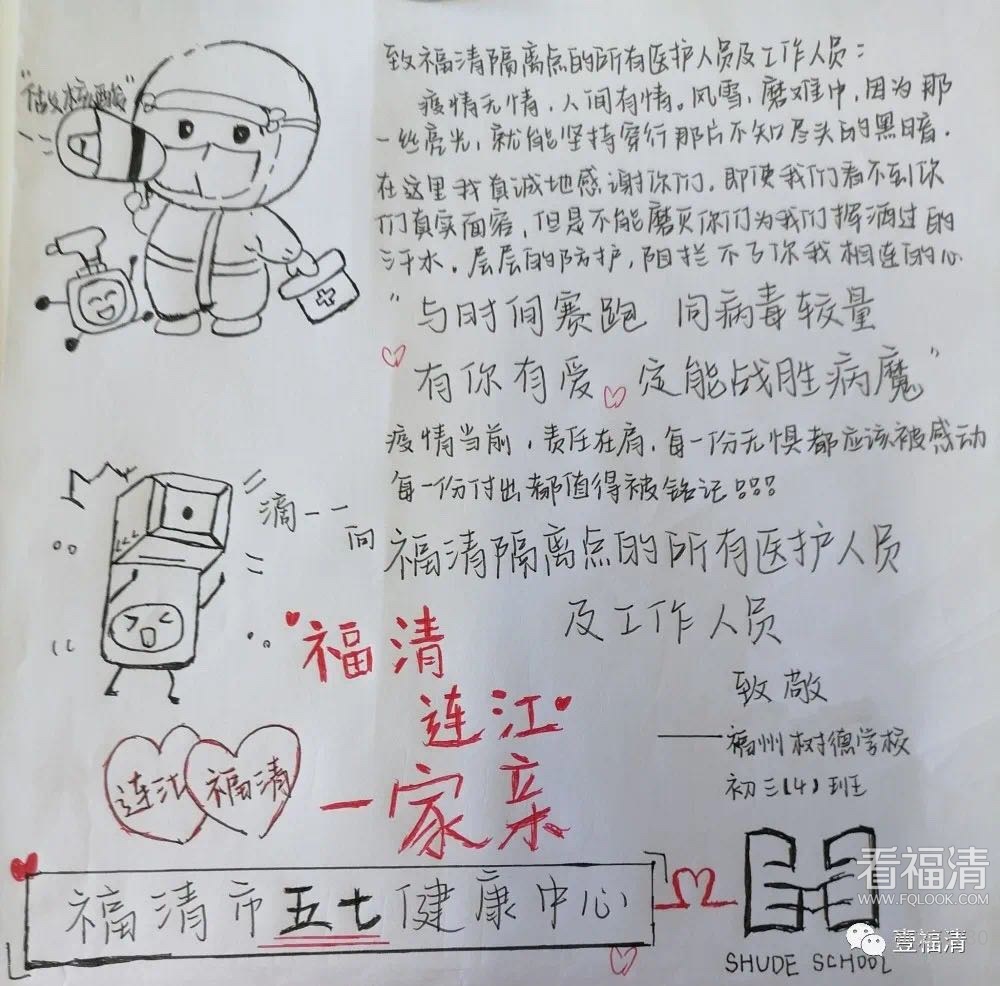 "估义核酸"
致福清隔离点的所有医护人员及工作人员：
疫情无情，人间有情。风雪，磨难中，因为那
一丝亮光，就能坚持穿行那片不知尽头的黑暗．
在这里我真诚地感谢你们，即使我们看不到你
们真实面容，但是不能磨灭你们为我们挥洒过的
汗水。层层的防护，阻拦不了你我相连的心
"与时间赛跑 同病毒较量
有你有爱 定能战胜病魔"
疫情当前，责任在肩，每一份无惧都应该被感动
每一份付出都值得被铭记!!!
滴——
向福清隔离点的所有医护人员
及工作人员
致敬
——福州树德学校
初三(4)班
福清
连江
一家亲
连江 福清
福清市五七健康中心
SHUDE SCHOOL
看福清
WWW.FQLOOK.COM
壹福清